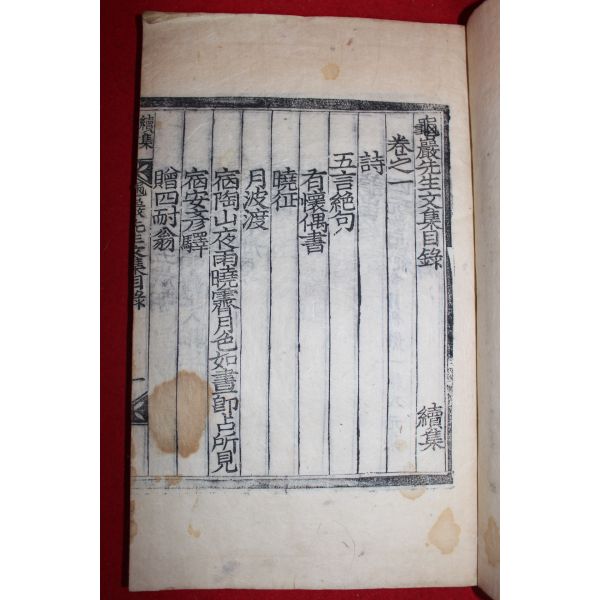 龜巖先生文集目錄 續集
卷之一
詩
五言絶句
有懷偶書
曉征
月波渡
宿陶山夜雨曉霽月色如晝卽占所見
宿安彥驛
贈四耐翁
續集 龜巖先生文集目錄 一